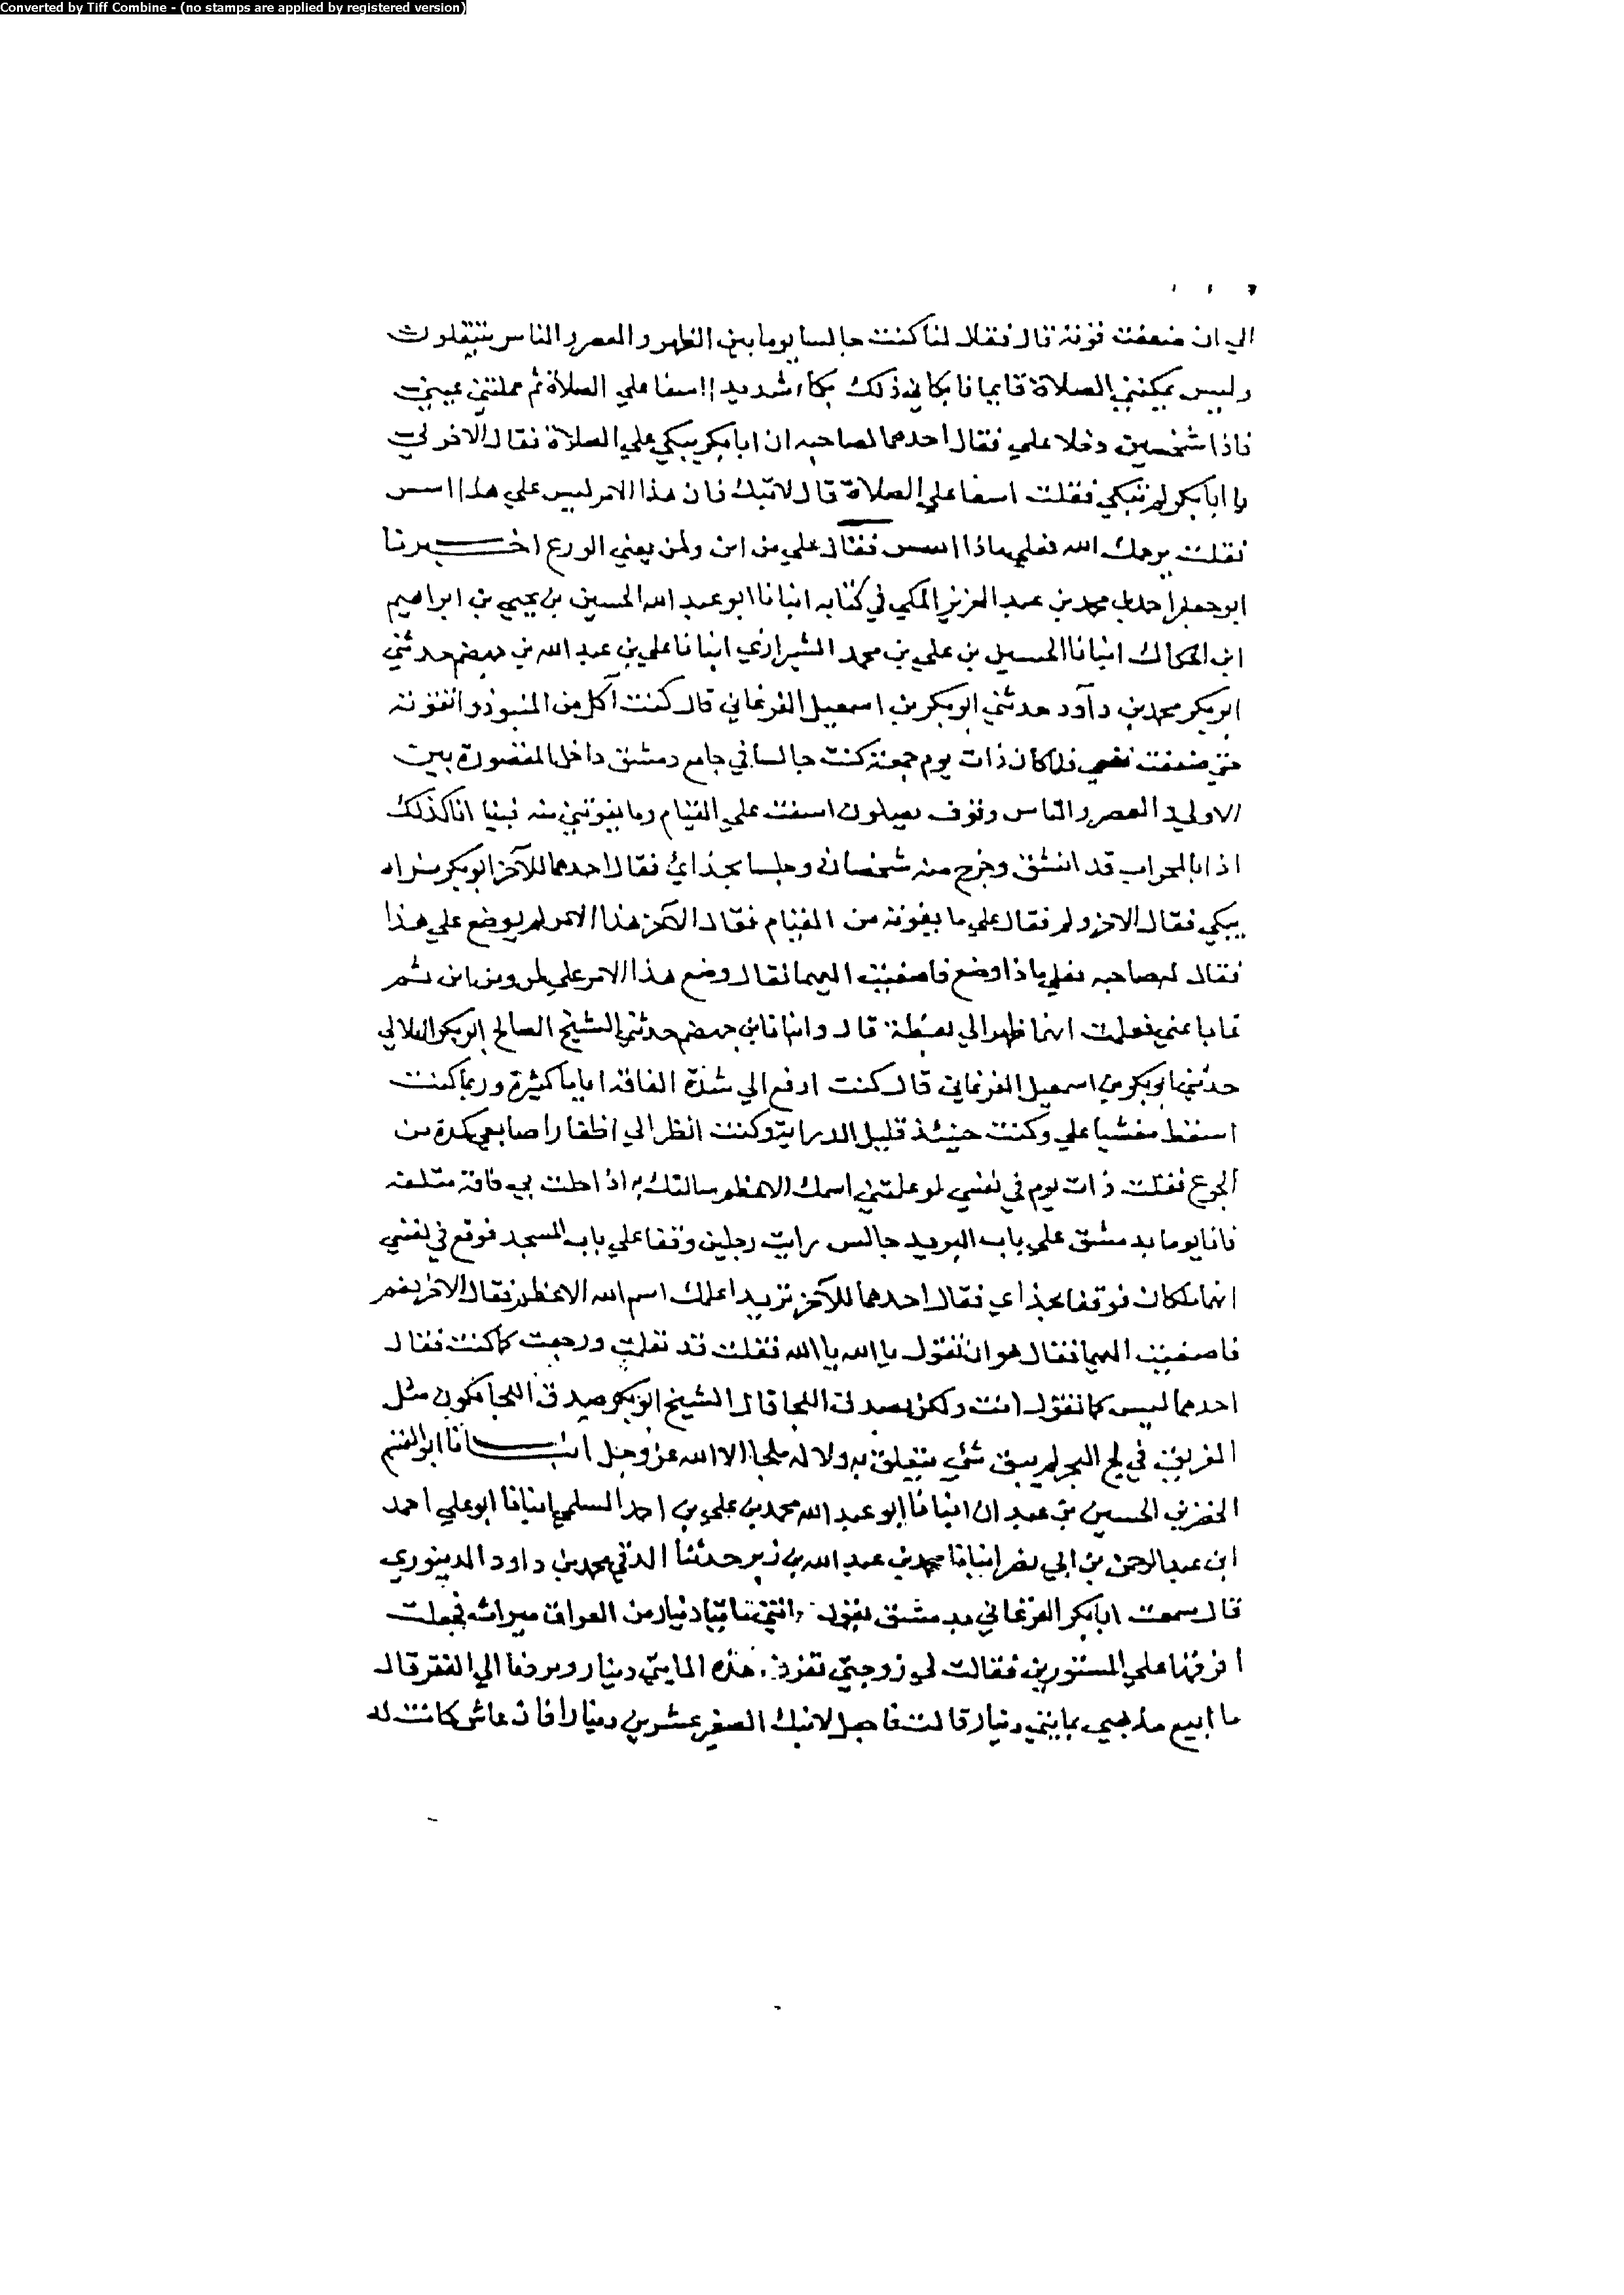 Converted by Tiff Combine - (no stamps are applied by registered version)
الي ان ضعفت قوته قال فقلا لنا كنت جالسا يوما بين الظهر والعصر والناس يتنفلون
وليس يمكنني الصلاة قايما فابكاني ذلك بكاء شديد اسفا علي الصلاة ثم حملتني عيني
فاذا شخصين دخلا علي فقال احدهما لصاحبه ان ابا بكر يبكي علي الصلاة فقال الاخر لي
يا ابا بكر لم تبكي فقلت اسفا علي الصلاة قال لا تبك فان هذا الامر ليس علي هذا اسس
فقلت يرحمك الله فعلي ماذا اسس فقال علي من اين ولمن يعني الورع اخبرنا
ابو جعفر احمد بن محمد بن عبد العزيز المكي في كتابه انبانا ابو عبد الله الحسين بن يحيي بن ابراهيم
ابن الحكاك انبانا الحسين بن علي بن محمد الشيرازي انبانا علي بن عبد الله بن جهضم حدثني
ابو بكر محمد بن دآود حدثني ابو بكر بن اسمعيل الفرغاني قال كنت آكل من المنبوذ واتقوته
حتي ضعفت نفسي فلما كان ذات يوم جمعة كنت جالسا في جامع دمشق داخل المقصورة بين
الاولي والعصر والناس وقوف يصلون اسفت علي القيام وما يفوتني منه فبينا انا كذلك
اذا بالمحراب قد انشق وخرج منه شخصان وجلسا بحذائي فقال احدهما للآخر ابو بكر تراه
يبكي فقال الاخر ولم فقال علي ما يفوته من القيام فقال الآخر هذا الامر لم يوضع علي هذا
فقال له صاحبه فعلي ماذا وضع فاصغيت اليهما فقال وضع هذا الامر علي لمن ومن اين ثم
غابا عني فعلمت انهما ظهرا لي يقظة قال وانبانا ابن جهضم حدثني الشيخ الصالح ابو بكر الهلالي
حدثني ابو بكر بن اسمعيل الفرغاني قال كنت ادفع الي شدة الفاقه اياما كثيرة وربما كنت
اسقط مغشيا علي وكنت حينئذ قليل الدراية وكنت انظر الي اظفار اصابعي كمدة من
الجوع فقلت ذات يوم في نفسي لو علمتني اسمك الاعظم سالتك به اذا حلت بي فاقة متلفه
فانا يوما بدمشق علي باب البريد جالس رايت رجلين وقفا علي باب المسجد فوقع في نفسي
انهما ملكان فوقفا بحذاي فقال احدهما للآخر تريد اعلمك اسم الله الاعظم فقال الاخر نعم
فاصغيت اليهما فقال هو ان تقول يا الله يا الله فقلت قد تعلمت ورجعت كما كنت فقال
احدهما ليس كما تقول انت ولكن بصدق اللجا قال الشيخ ابو بكر صدق اللجا يكون مثل
الغريق في لج البحر لم يبق شي يتعلق به ولا له ملجا الا الله عز وجل انبانا ابو الغنم
الخضر بن الحسين بن عبدان انبانا ابو عبد الله محمد بن علي بن احمد السلمي انبانا ابو علي احمد
ابن عبد الرحمن بن ابي نصر انبانا محمد بن عبد الله بن زبر حدثنا الدقي محمد بن داود الدينوري
قال سمعت ابا بكر الفرغاني بدمشق يقول اتتني مايتا دينار من العراق ميراثه فجعلت
افرقها علي المستورين فقالت لي زوجتي تفرق هذه المايتي دينار وترجعنا الي الفقر قال
ما ابيع مذهبي بمايتي دينار قالت فاجعل لابنك الصغير عشرين دينارا فان عاش كانت له